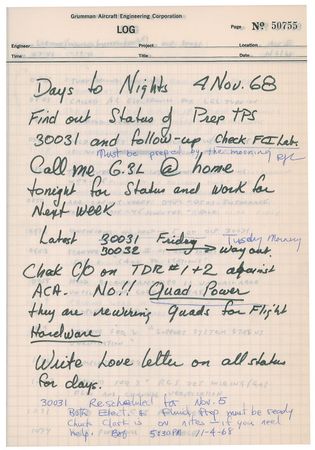 Grumman Aircraft Engineering Corporation
LOG
Page Nº 50755
Engineer Project Location
Time Title Date
Days to Nights 4 Nov. 68
Find out Status of Prep TPS
30031 and follow-up Check FCI Lab.
Must be prepped by the morning
Call me G.SL @ home
tonight for Status and work for
Next Week
Latest 30031 Friday Tuesday Morning
30032 → way out.
Check C/O on TDR #1+2 against
ACA. No!! Quad Power
they are rewiring quads for Flight
Hardware
Write Love letter on all status
for days.
30031 Rescheduled for Nov. 5
Both Elect. & Fluid Prep must be ready
Chuck Clark is on nites - if you need
help. Bob 5:30PM 11-4-68